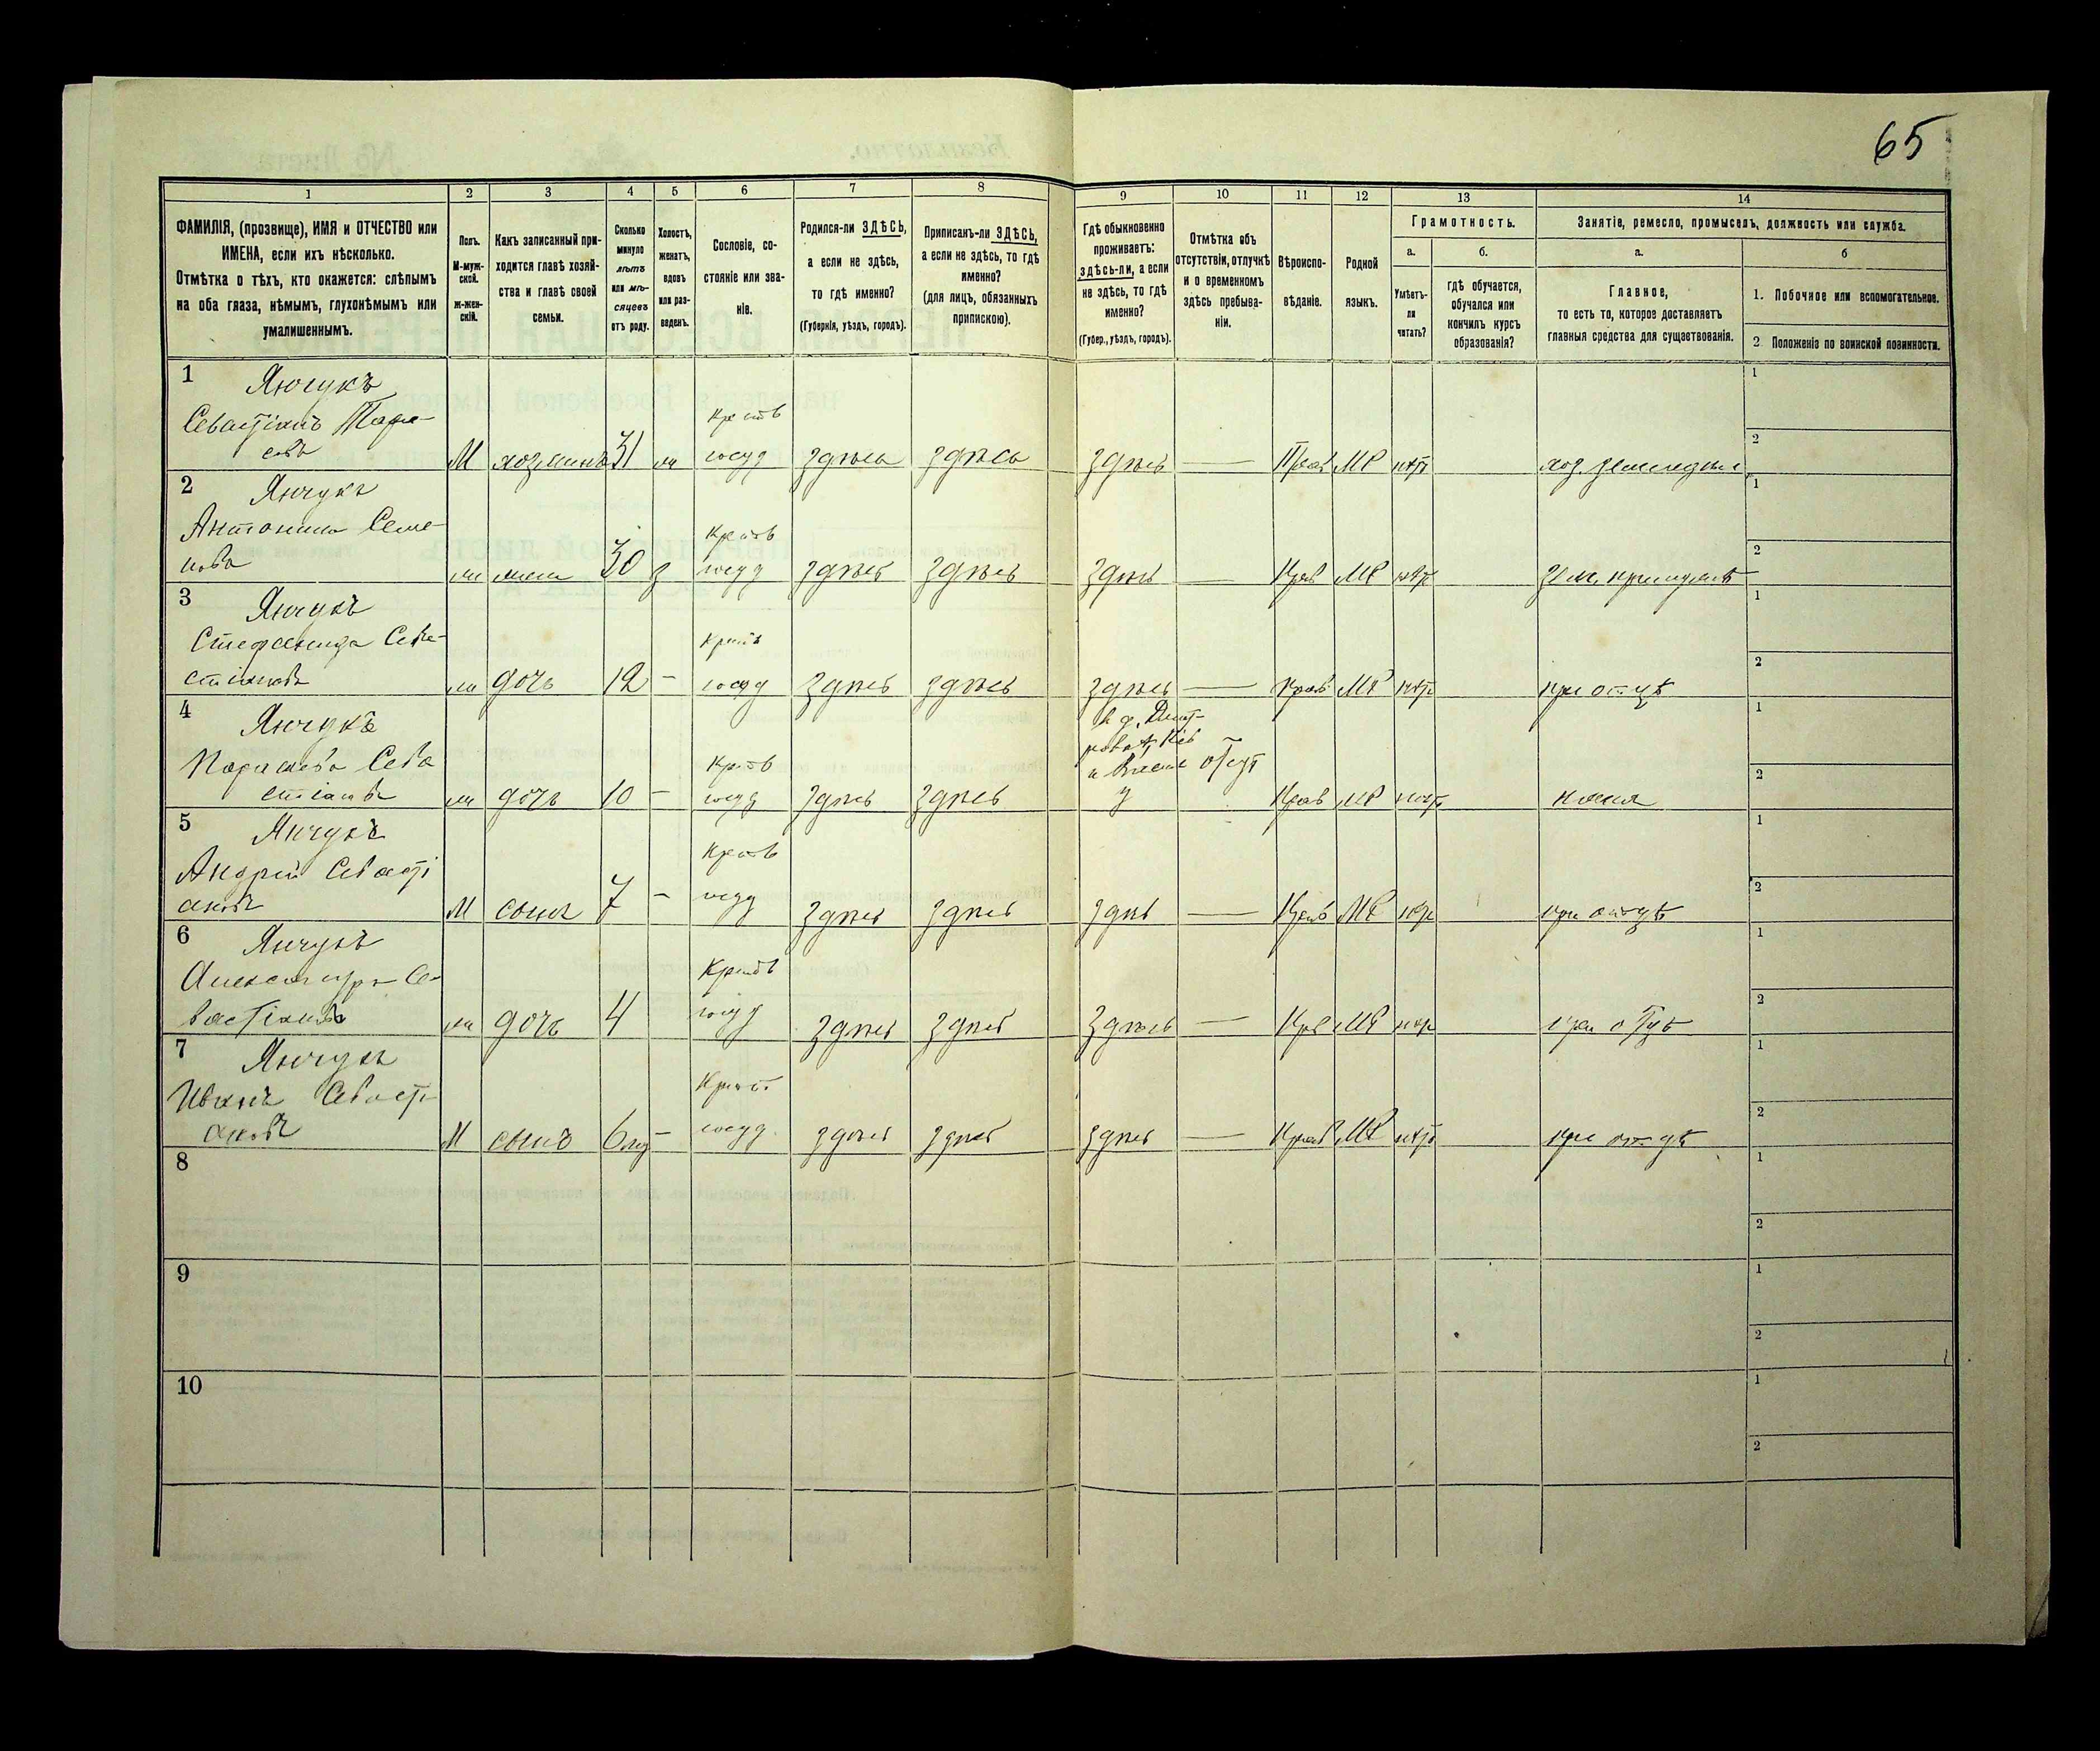 65
1
2
3
4
5
6
7
8
9
10
11
12
13
14
ФАМИЛІЯ, (прозвище), ИМЯ и ОТЧЕСТВО или
ИМЕНА, если ихъ нѣсколько.
Отмѣтка о тѣхъ, кто окажется: слѣпымъ
на оба глаза, нѣмымъ, глухонѣмымъ или
умалишеннымъ.
Полъ.
М-муж-
ской.
ж-жен-
скій.
Какъ записанный при-
ходится главѣ хозяй-
ства и главѣ своей
семьи.
Сколько
минуло
лѣтъ
или мѣ-
сяцевъ
отъ роду.
Холостъ,
женатъ,
вдовъ
или раз-
веденъ.
Сословіе, со-
стояніе или зва-
ніе.
Родился-ли ЗДѢСЬ,
а если не здѣсь,
то гдѣ именно?
(Губернія, уѣздъ, городъ).
Приписанъ-ли ЗДѢСЬ,
а если не здѣсь, то гдѣ
именно?
(для лицъ, обязанныхъ
припискою).
Гдѣ обыкновенно
проживаетъ:
здѣсь-ли, а если
не здѣсь, то гдѣ
именно?
(Губер., уѣздъ, городъ).
Отмѣтка объ
отсутствіи, отлучкѣ
и о временномъ
здѣсь пребыва-
ніи.
Вѣроиспо-
вѣданіе.
Родной
языкъ.
Грамотность.
а.
Умѣетъ-
ли
читать?
б.
гдѣ обучается,
обучался или
кончилъ курсъ
образованія?
Занятіе, ремесло, промыселъ, должность или служба.
а.
Главное,
то есть то, которое доставляетъ
главныя средства для существованія.
б
1. Побочное или вспомогательное.
2 Положеніе по воинской повинности.
1 Янчукъ
Севастіанъ Тара-
совъ М хозяинъ 31 ж Крест госуд здѣсь здѣсь здѣсь — Прав МР нѣт хоз земледѣл
2 Янчукъ
Антонина Семе-
нова ж жена 30 з Крест госуд здѣсь здѣсь здѣсь — Прав МР нѣт
3 Янчукъ
Стефанида Сева-
стіанова ж дочь 12 — Крест госуд здѣсь здѣсь здѣсь — Прав МР нѣт при отцѣ
4 Янчукъ
Параскева Сева
стіанова ж дочь 10 — Крест госуд здѣсь здѣсь отсут Прав МР нѣт няня
5 Янчукъ
Андрей Севасті
ановъ М сынъ 7 — Крест госуд здѣсь здѣсь здѣсь — Прав МР нѣт при отцѣ
6 Янчукъ
Александра Се-
вастіанова ж дочь 4 Крест госуд здѣсь здѣсь здѣсь — Прав МР нѣт при отцѣ
7 Янчукъ
Иванъ Севасті-
ановъ М сынъ 6 — Крест госуд здѣсь здѣсь здѣсь — Прав МР нѣт при отцѣ
8
9
10